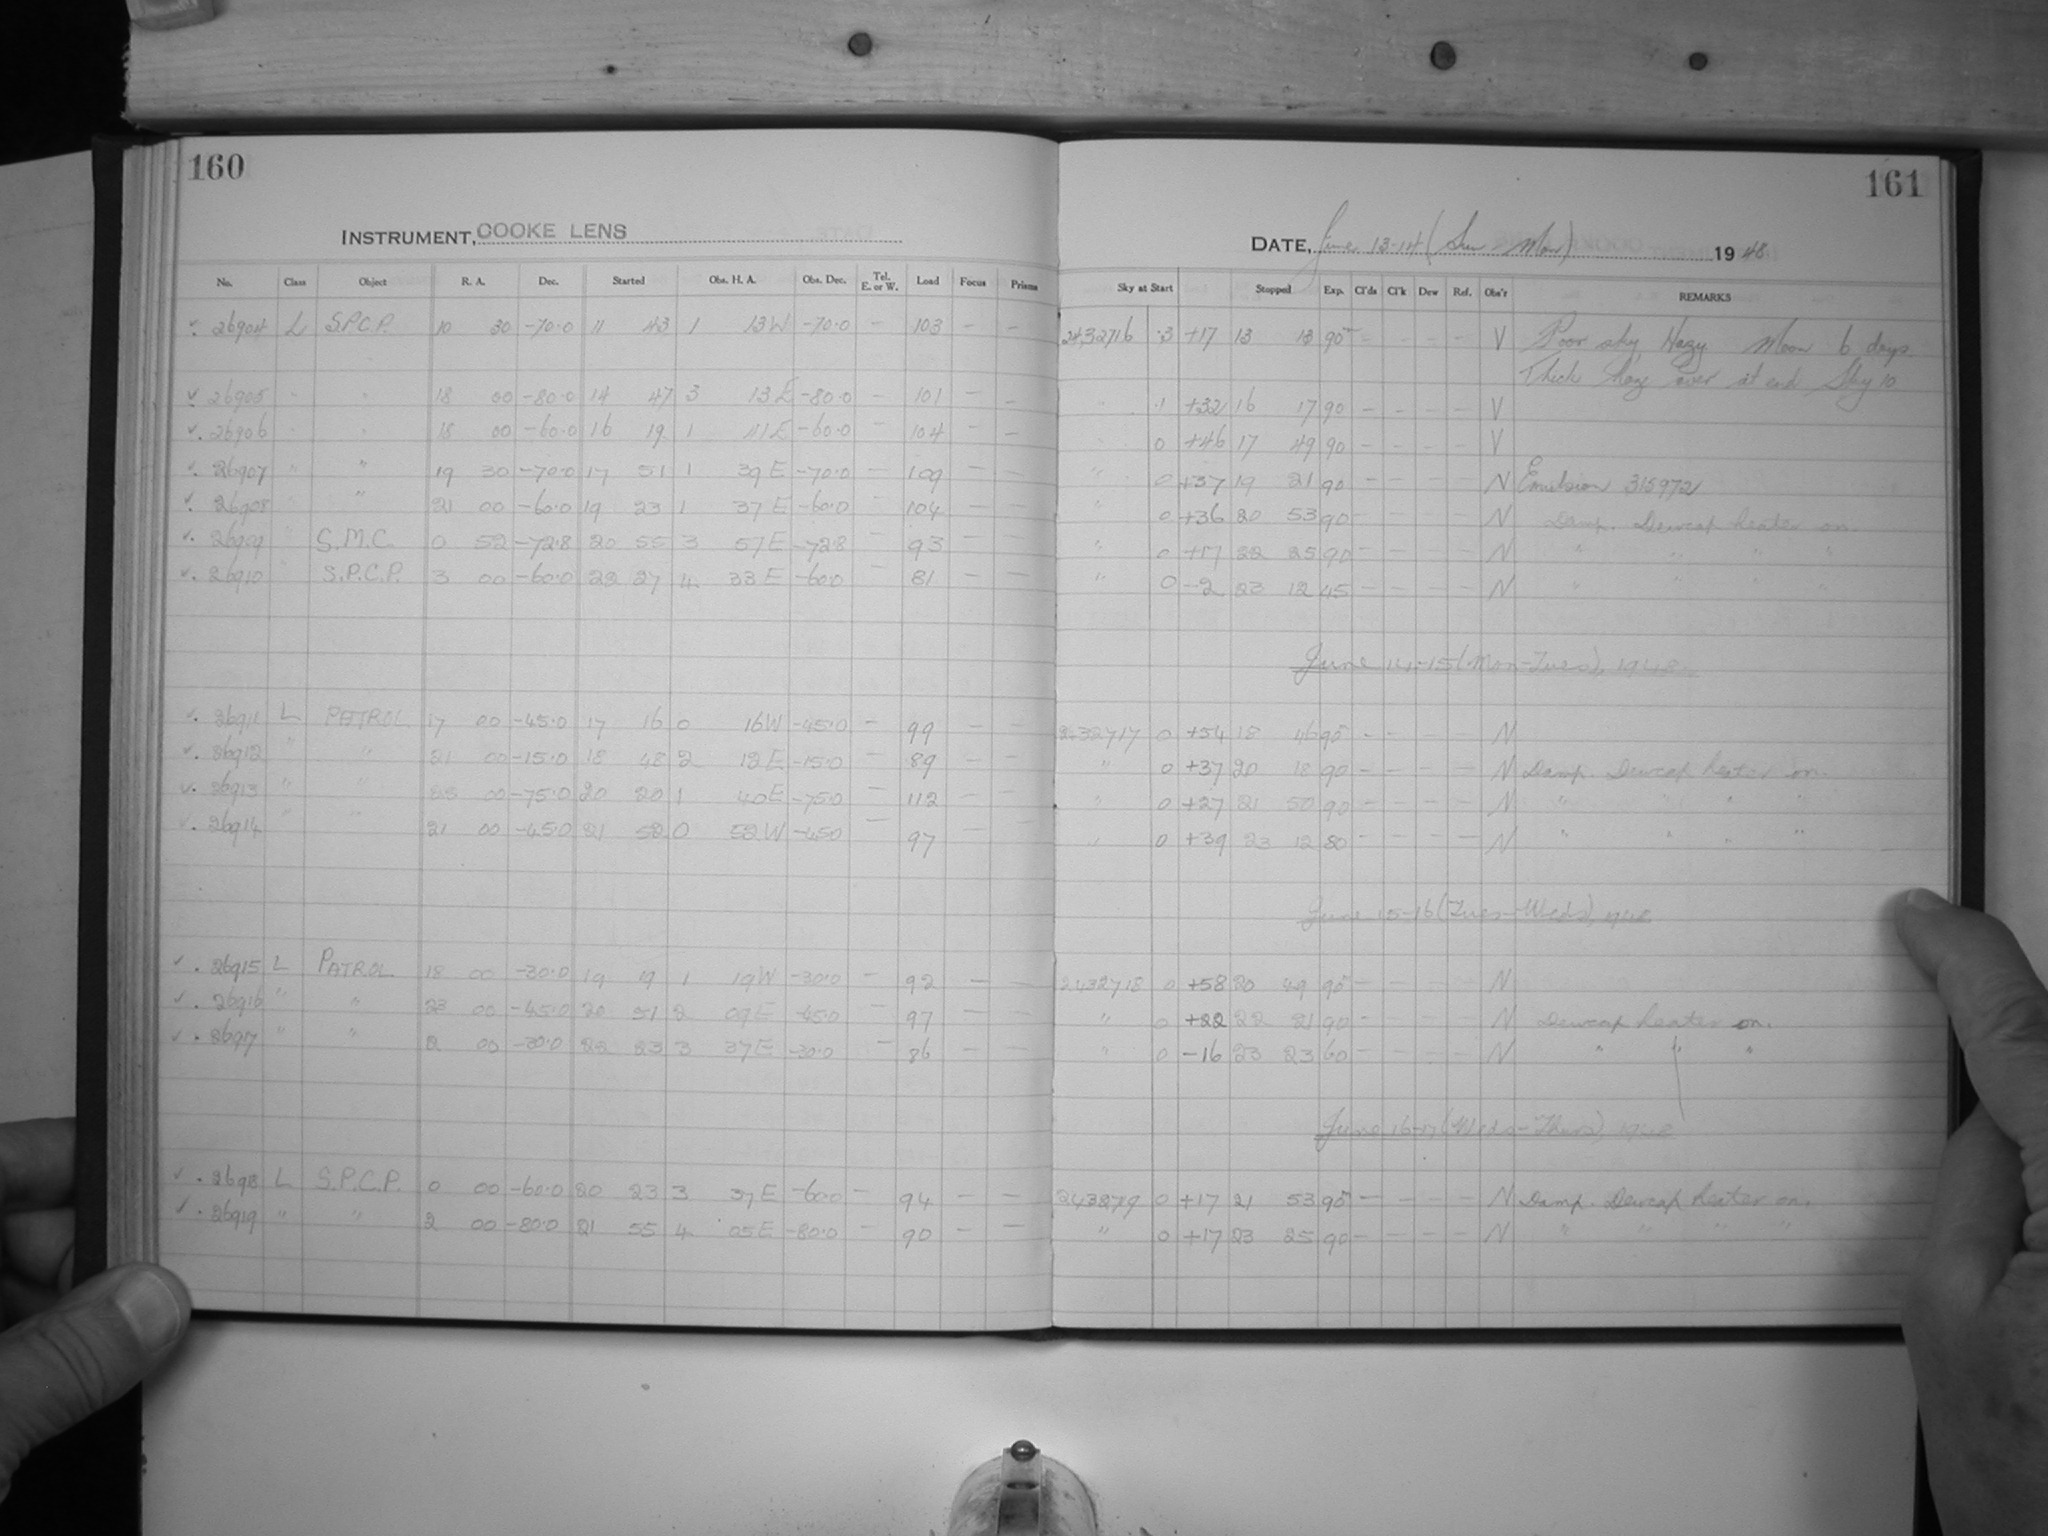 160
INSTRUMENT, COOKE LENS
No. Class Object R. A. Dec. Started Obs. H. A. Obs. Dec. Tel. E. or W. Load Focus Prisms
✓. 26904 L S.P.C.P. 10 30 -70.0 11 43 1 13W -70.0 - 103 - -
✓. 26905 " " 18 00 -80.0 14 47 3 13E -80.0 - 101 - -
✓. 26906 " " 18 00 -60.0 16 19 1 41E -60.0 - 104 - -
✓. 26907 " " 19 30 -70.0 17 51 1 39E -70.0 - 109 - -
✓. 26908 " " 21 00 -60.0 19 23 1 37E -60.0 - 104 - -
✓. 26909 " S.M.C. 0 52 -72.8 20 55 3 57E -72.8 - 93 - -
✓. 26910 " S.P.C.P. 3 00 -60.0 22 27 4 33E -60.0 - 81 - -
✓. 26911 L PATROL 17 00 -45.0 17 16 0 16W -45.0 - 99 - -
✓. 26912 " " 21 00 -15.0 18 48 2 12E -15.0 - 89 - -
✓. 26913 " " 00 -75.0 20 20 1 40E -75.0 - 112 - -
✓. 26914 " " 21 00 -45.0 21 52 0 52W -45.0 - 97 - -
✓. 26915 L PATROL 18 00 -30.0 19 19 1 19W -30.0 - 92 - -
✓. 26916 " " 23 00 -45.0 20 51 2 09E -45.0 - 97 - -
✓. 26917 " " 2 00 -30.0 22 23 3 37E -30.0 - 86 - -
✓. 26918 L S.P.C.P. 0 00 -60.0 20 23 3 37E -60.0 - 94 - -
✓. 26919 " " 2 00 -80.0 21 55 4 05E -80.0 - 90 - -
161
DATE, June 13-14 (Sun - Mon) 1948
Sky at Start Stopped Exp. Cl'ds Cl'k Dew Ref. Obs'r REMARKS
2432716 .3 +17 13 13 90 - - - - V Poor sky, Hazy Moon 6 days.
Thick haze over at end Sky 10
" .1 +32 16 17 90 - - - - V
" 0 +46 17 49 90 - - - - V
" 0 +37 19 21 90 - - - - N Emulsion 315972
" 0 +36 20 53 90 - - - - N Damp. Dewcap heater on.
" 0 +17 22 25 90 - - - - N " " " "
" 0 -2 23 12 45 - - - - N " " "
June 14-15 (Mon-Tues), 1948.
2432717 0 +54 18 46 90 - - - - N
" 0 +37 20 18 90 - - - - N Damp. Dewcap heater on.
" 0 +27 21 50 90 - - - - N " " " "
" 0 +39 23 12 80 - - - - N " " " "
June 15-16 (Tues-Weds), 1948
2432718 0 +58 20 49 90 - - - - N
" 0 +22 22 21 90 - - - - N Dewcap heater on.
" 0 -16 23 23 60 - - - - N " " "
June 16-17 (Weds-Thurs), 1948
243279 0 +17 21 53 90 - - - - N Damp. Dewcap heater on.
" 0 +17 23 25 90 - - - - N " " " "